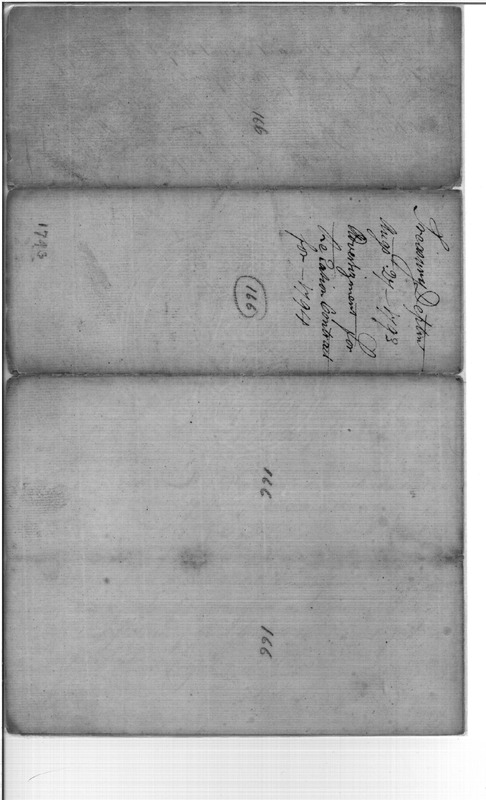 166
Treasury Deptmt
Augt. 29. 1793
Advertizment for
the Ration Contract
for 1794
166
1793
166
166